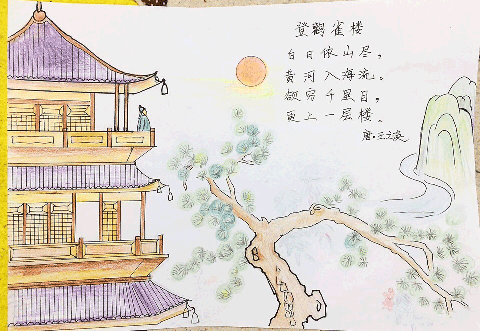 登觀雀楼
白日依山尽，
黄河入海流。
欲穷千里目，
更上一层楼。
唐·王之涣